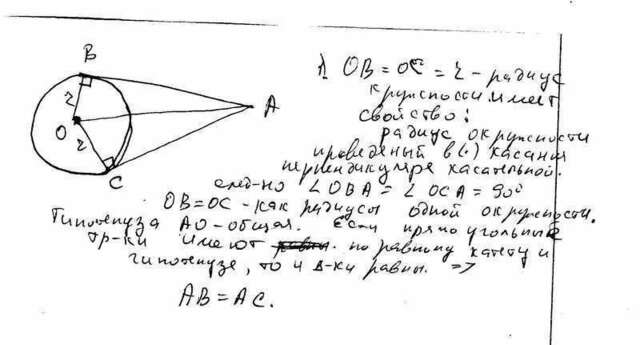 B
A
O
C
r
r
1. OB = OC = r - радиус
окружности имеет
свойство:
радиус окружности
проведеный в (·) касания
перпендикуляре касательной.
след-но ∠OBA = ∠OCA = 90°
OB = OC - как радиусы одной окружности.
Гипотенуза AO - общая. Если прямоугольные
тр-ки имеют по равному катету и
гипотенузе, то и Δ-ки равны. =>
AB = AC.